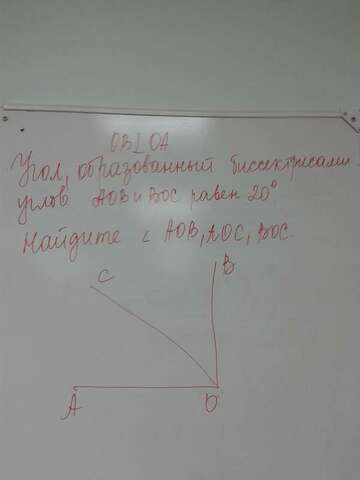 OB⊥OA
Угол, образованный биссектрисами
углов AOB и BOC равен 20°
Найдите ∠ AOB, AOC, BOC.
C
B
A
O